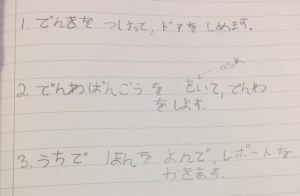 1. でんきを つけって, ドアを しめます.
ask
2. でんわばんごう を きいて, でんわ
をします.
3. うちで ほんを よんで, レポートを
かきます.